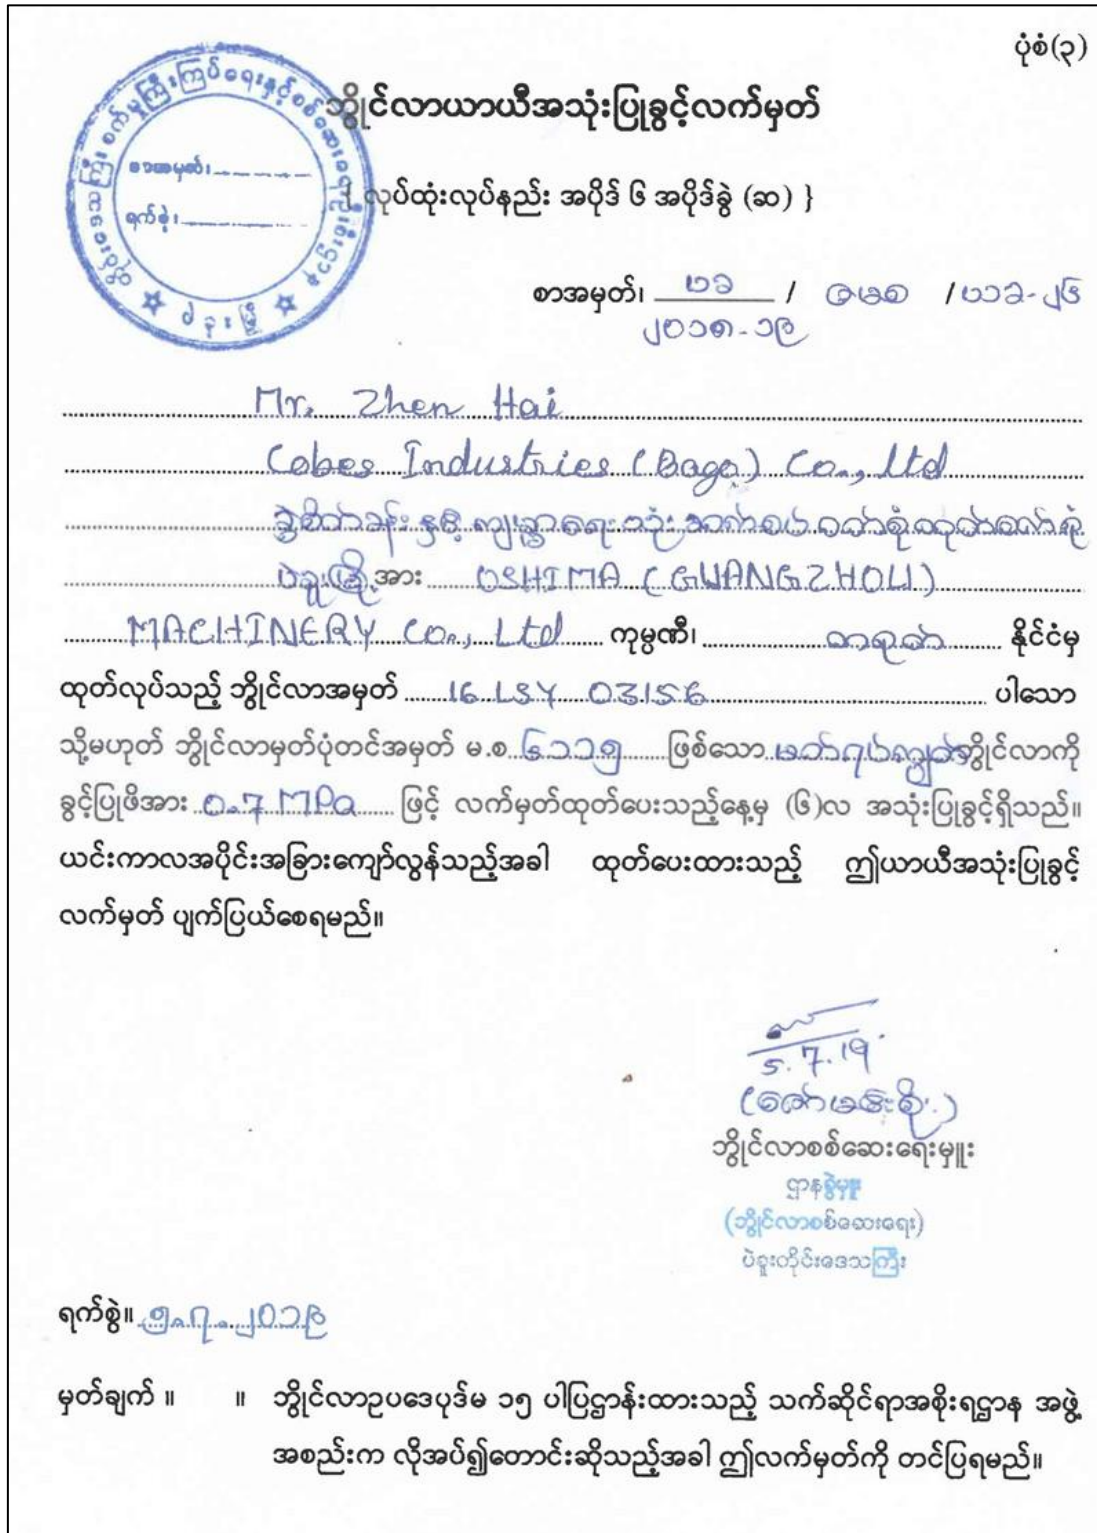 ပုံစံ(၃)
ဘွိုင်လာယာယီအသုံးပြုခွင့်လက်မှတ်
{ လုပ်ထုံးလုပ်နည်း အပိုဒ် ၆ အပိုဒ်ခွဲ (ဆ) }
စာအမှတ်၊
ရက်စွဲ၊
စာအမှတ်၊ /
၂၀၁၈-၁၉
Mr. Zhen Hai
Cobes Industries (Bago) Co., Ltd
ပဲခူးမြို့ အား OSHIMA (GUANGZHOU)
MACHINERY Co., Ltd ကုမ္ပဏီ၊ တရုတ် နိုင်ငံမှ
ထုတ်လုပ်သည့် ဘွိုင်လာအမှတ် 16 LSY 03156 ပါသော
သို့မဟုတ် ဘွိုင်လာမှတ်ပုံတင်အမှတ် မ.စ ၆၁၁၅ ဖြစ်သော ဘွိုင်လာကို
ခွင့်ပြုဖိအား 0.7 MPa ဖြင့် လက်မှတ်ထုတ်ပေးသည့်နေ့မှ (၆)လ အသုံးပြုခွင့်ရှိသည်။
ယင်းကာလအပိုင်းအခြားကျော်လွန်သည့်အခါ ထုတ်ပေးထားသည့် ဤယာယီအသုံးပြုခွင့်
လက်မှတ် ပျက်ပြယ်စေရမည်။
5.7.19
ဘွိုင်လာစစ်ဆေးရေးမှူး
ဌာနခွဲမှူး
(ဘွိုင်လာစစ်ဆေးရေး)
ပဲခူးတိုင်းဒေသကြီး
ရက်စွဲ။ ၅.၇.၂၀၁၉
မှတ်ချက် ။ ။ ဘွိုင်လာဥပဒေပုဒ်မ ၁၅ ပါပြဋ္ဌာန်းထားသည့် သက်ဆိုင်ရာအစိုးရဌာန အဖွဲ့
အစည်းက လိုအပ်၍တောင်းဆိုသည့်အခါ ဤလက်မှတ်ကို တင်ပြရမည်။